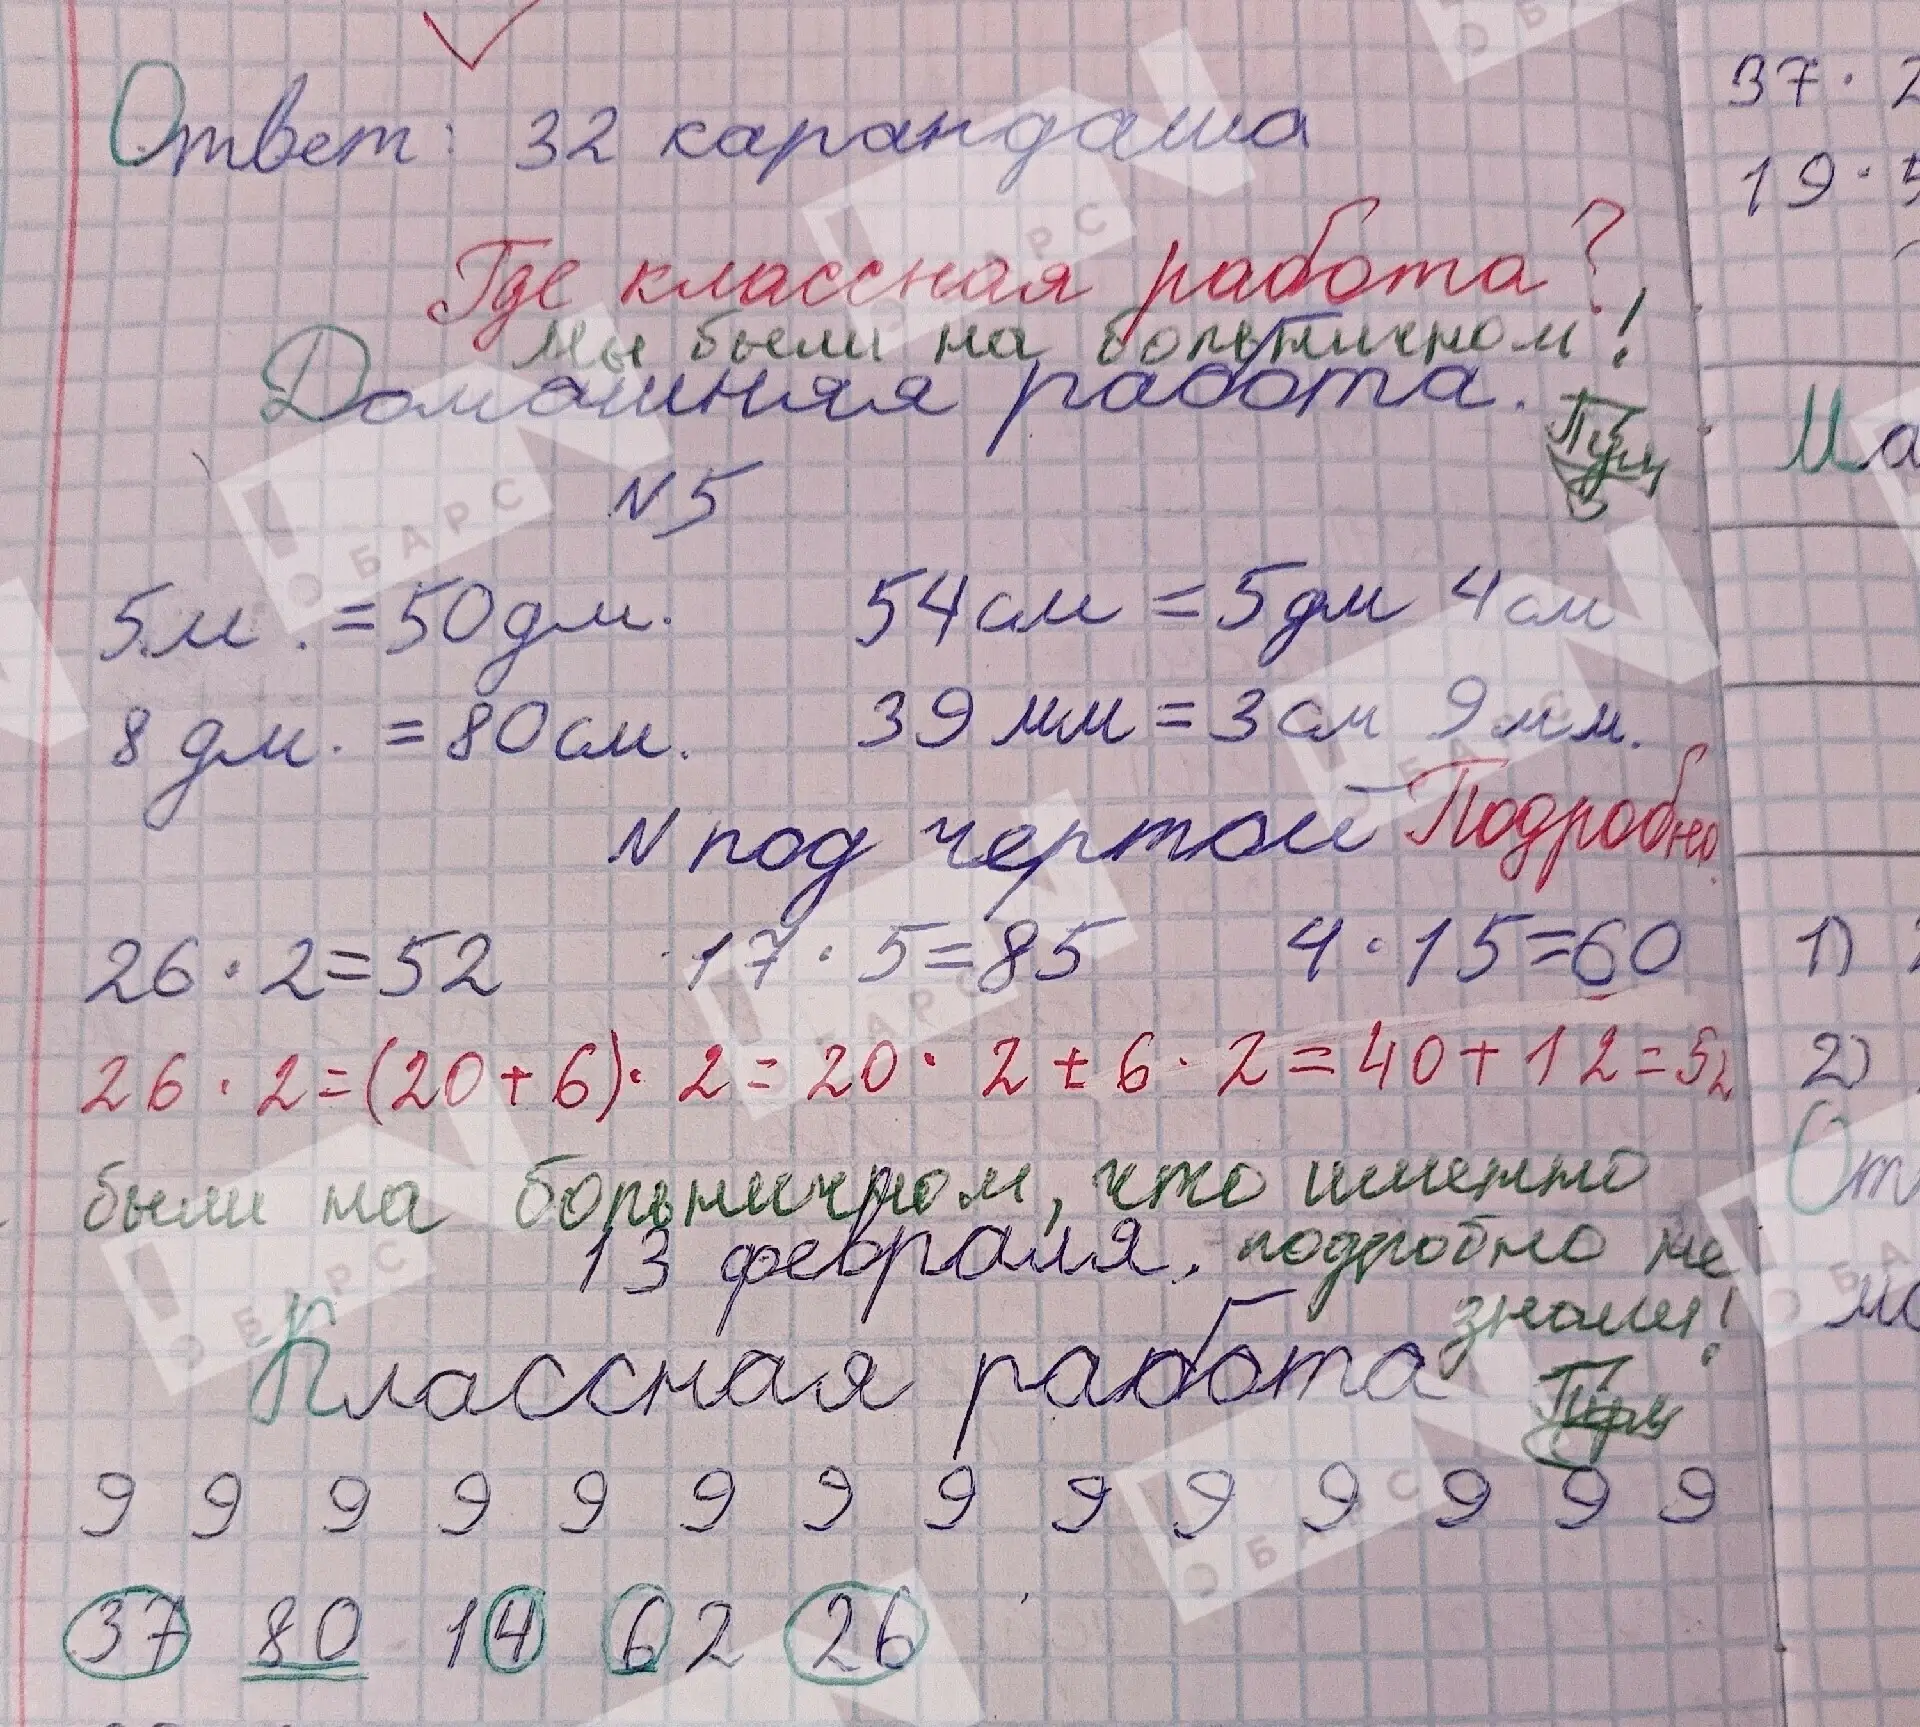 Ответ: 32 карандаша
Где классная работа?
Мы были на больничном!
Домашняя работа.
N5
5.м. = 50 дм. 54 см = 5 дм 4 см
8 дм. = 80 см. 39 мм = 3 см 9 мм.
N под чертой Подробно.
26 · 2 = 52 17 · 5 = 85 4 · 15 = 60
26 · 2 = (20 + 6) · 2 = 20 · 2 + 6 · 2 = 40 + 12 = 52
были на больничном, что именно
13 февраля. подробно не
знали!
Классная работа
9 9 9 9 9 9 9 9 9 9 9 9 9 9
37 80 14 62 26
37 · 2
19 ·
Ма
1)
2)
От
БАРС